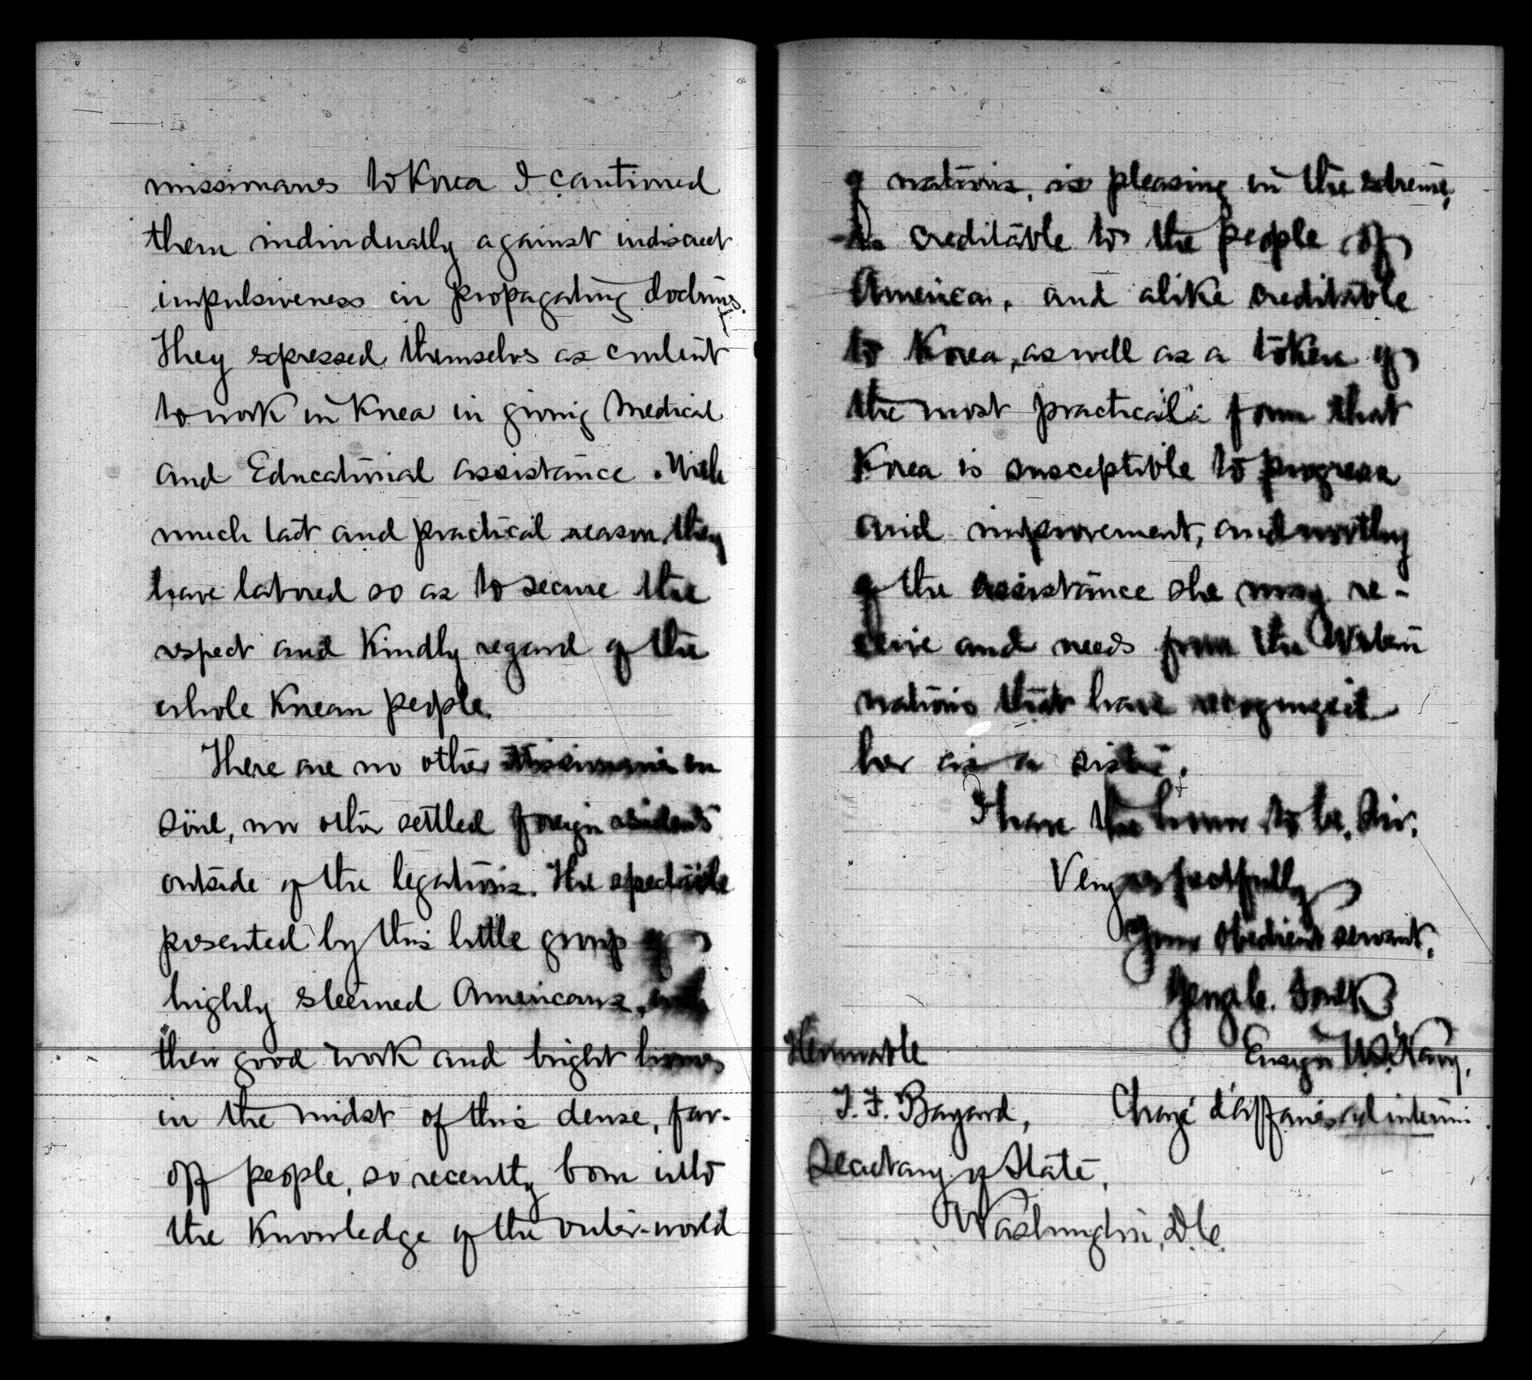 missionaries to Korea I cautioned
them individually against indiscreet
impulsiveness in propagating doctrines.
They expressed themselves as content
to work in Korea in giving Medical
and Educational assistance. With
much tact and practical reason they
have labored so as to secure the
respect and kindly regard of the
whole Korean people.
There are no other missionaries in
Söul, no other settled foreign residents
outside of the legations. The spectacle
presented by this little group of
highly esteemed Americans, with
their good work and bright homes
in the midst of this dense, far-
off people, so recently born into
the knowledge of the outer-world
of nations, is pleasing in the extreme,
is creditable to the people of
America, and alike creditable
to Korea, as well as a token of
the most practical form that
Korea is susceptible to progress
and improvement, and worthy
of the assistance she may re-
ceive and needs from the Western
nations that have recognized
her as a sister.
I have the honor to be, Sir,
Very respectfully
Your obedient servant,
George C. Foulk
Ensign U.S. Navy,
Honorable
T. F. Bayard, Chargé d'affaires ad interim
Secretary of State,
Washington, D.C.